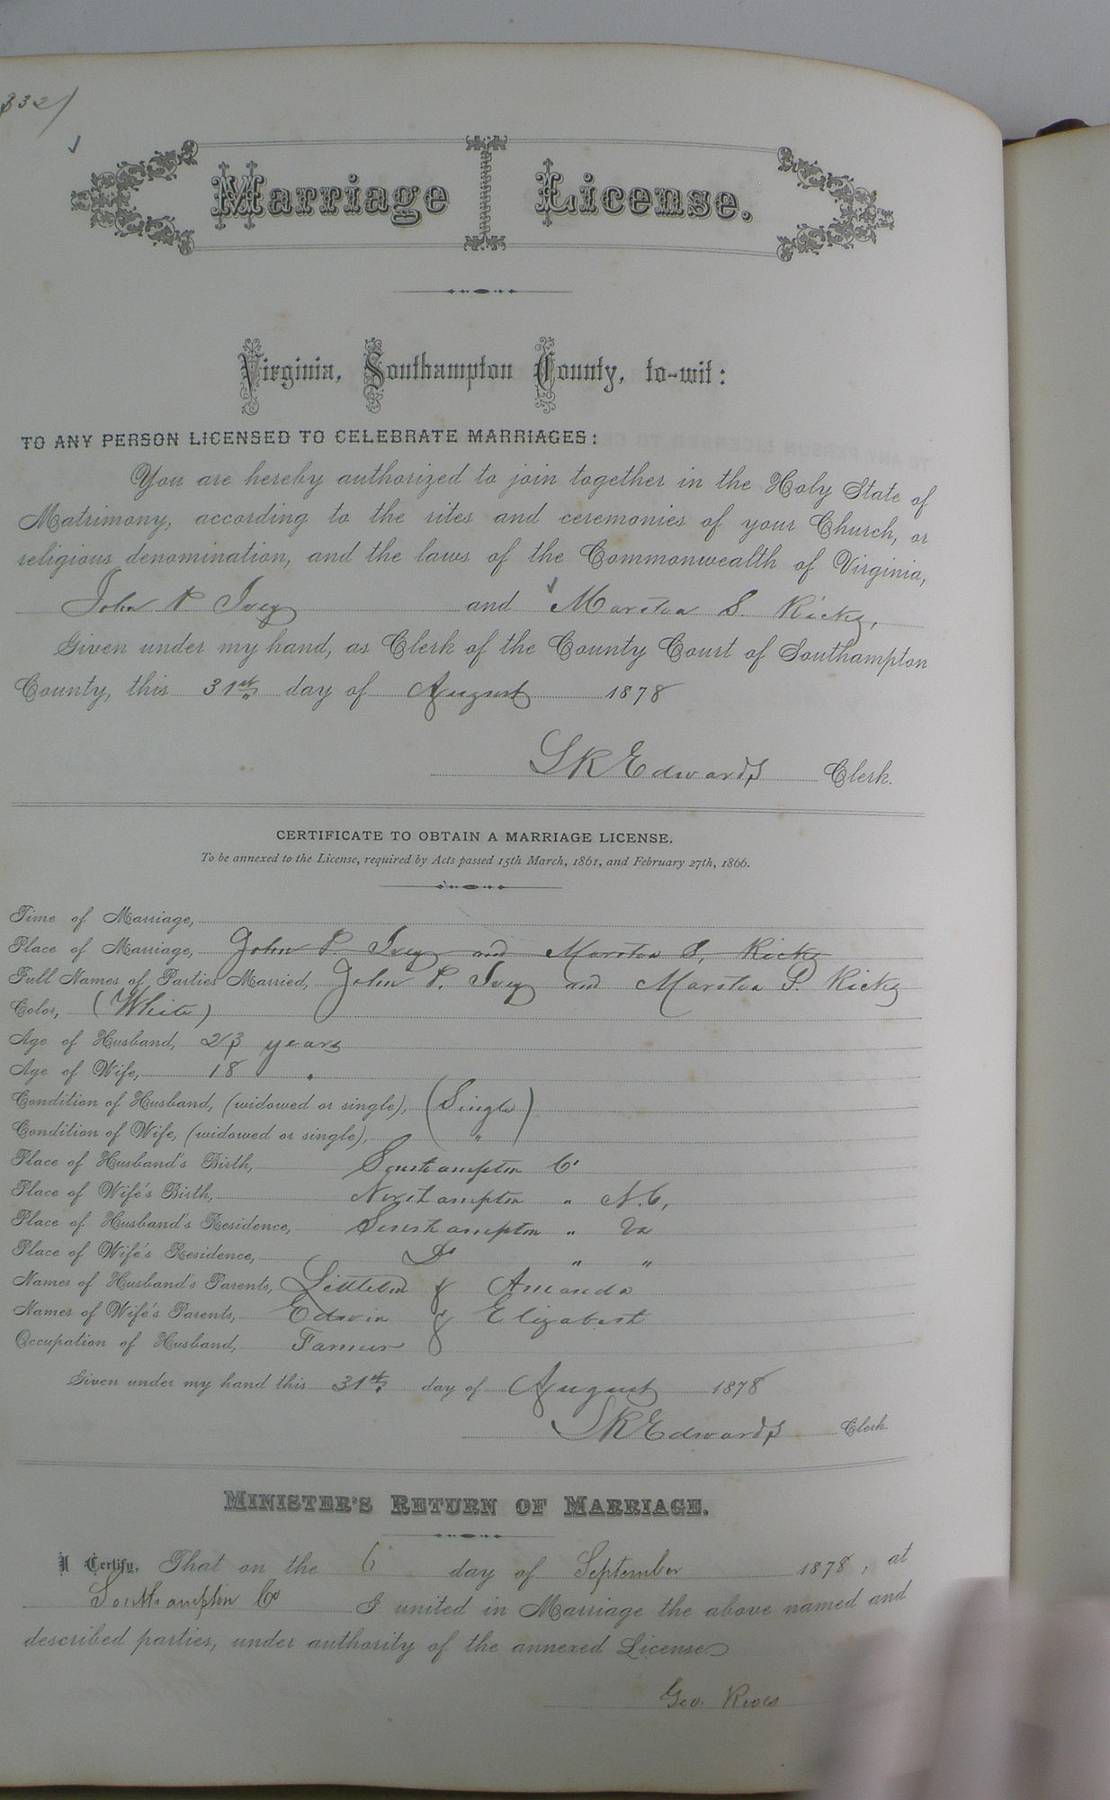 332
Marriage License.
Virginia, Southampton County, to-wit:
TO ANY PERSON LICENSED TO CELEBRATE MARRIAGES:
You are hereby authorized to join together in the Holy State of
Matrimony, according to the rites and ceremonies of your Church, or
religious denomination, and the laws of the Commonwealth of Virginia,
John P Ivey and Marotia S. Ricks,
Given under my hand, as Clerk of the County Court of Southampton
County, this 31st day of August 1878
S K Edwards Clerk.
CERTIFICATE TO OBTAIN A MARRIAGE LICENSE.
To be annexed to the License, required by Acts passed 15th March, 1861, and February 27th, 1866.
Time of Marriage,
Place of Marriage, John P. Ivey and S. Ricks
Full Names of Parties Married, John P. Ivey and S. Ricks
Color, (White)
Age of Husband, 23 years
Age of Wife, 18 "
Condition of Husband, (widowed or single), (Single)
Condition of Wife, (widowed or single), "
Place of Husband's Birth, Southampton Co
Place of Wife's Birth, Northampton " N.C,
Place of Husband's Residence, Southampton " Va
Place of Wife's Residence, Do " "
Names of Husband's Parents, & Amanda
Names of Wife's Parents, Edwin & Elizabeth
Occupation of Husband, Farmer
Given under my hand this 31st day of August 1878
S K Edwards Clerk
MINISTER'S RETURN OF MARRIAGE.
I Certify, That on the 6 day of September 1878, at
Southampton Co I united in Marriage the above named and
described parties, under authority of the annexed License
Geo.